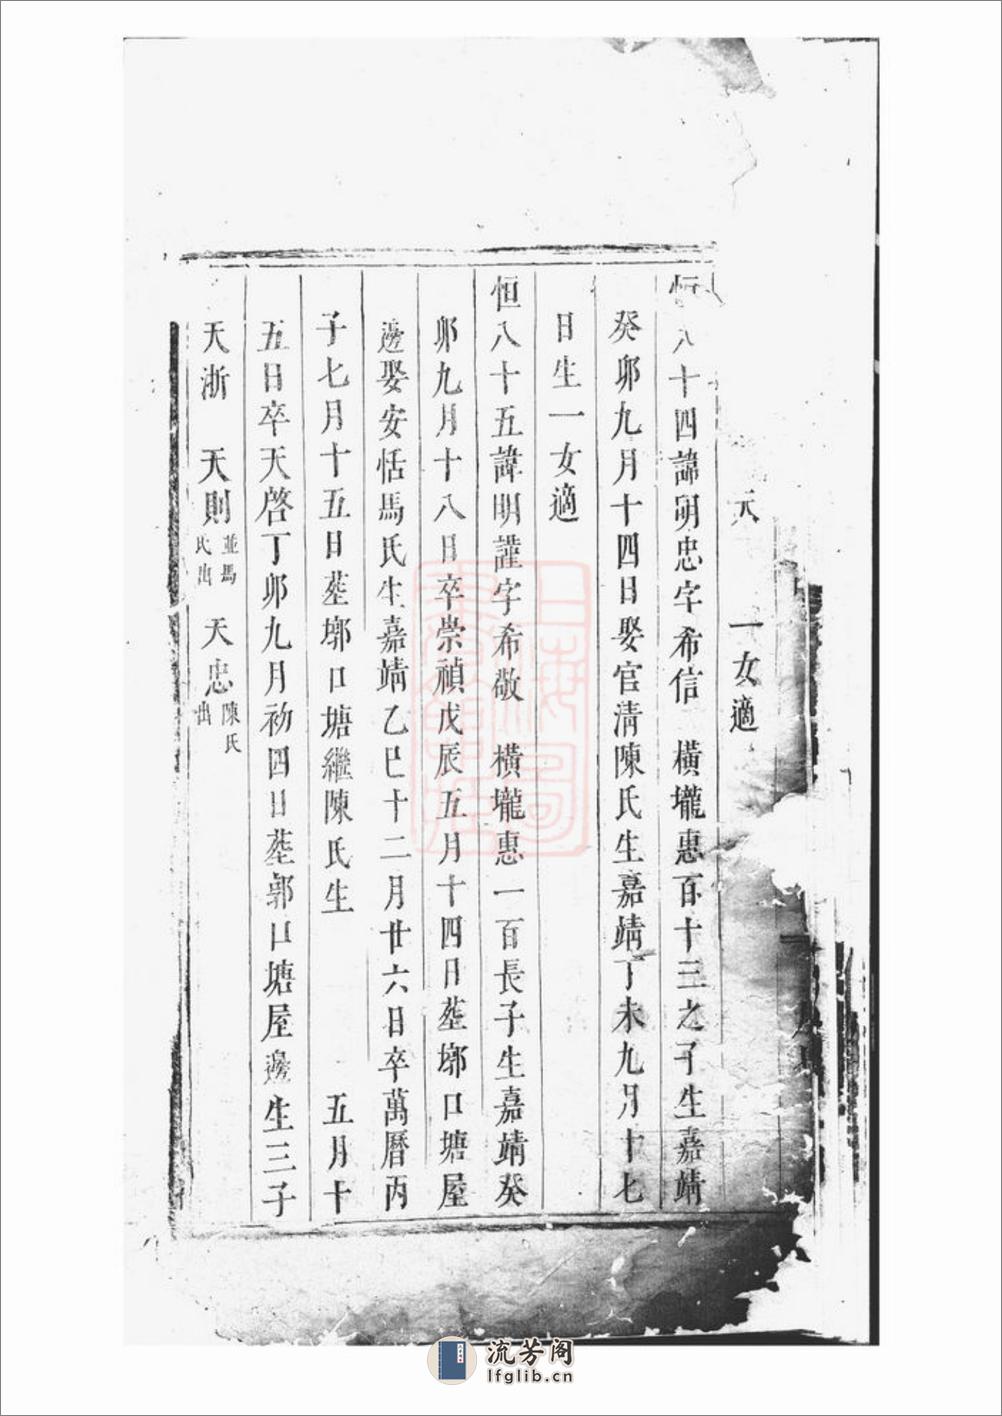 元　一女適
恒八十四諱明忠字希信　橫壠惠百十三之子生嘉靖
癸卯九月十四日娶官清陳氏生嘉靖丁未九月十七
日生一女適
恒八十五諱明謹字希敬　橫壠惠一百長子生嘉靖癸
卯九月十八日卒崇禎戊辰五月十四日塟墎口塘屋
邊娶安恬馬氏生嘉靖乙巳十二月廿六日卒萬曆丙
子七月十五日塟墎口塘繼陳氏生　五月十
五日卒天啓丁卯九月初四日塟郭口塘屋邊生三子
天浙　天則並馬氏出　天忠陳氏出
流芳阁
lfglib.cn